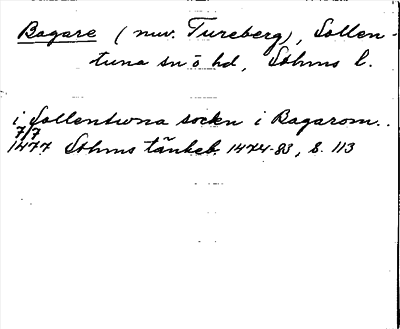 Bagare (nuv. Tureberg), Sollen-
tuna sn o hd, Sthms l.
i Sollentwna sockn i Bagarom..
7/7
1477 Sthms tänkeb. 1474-83, s. 113